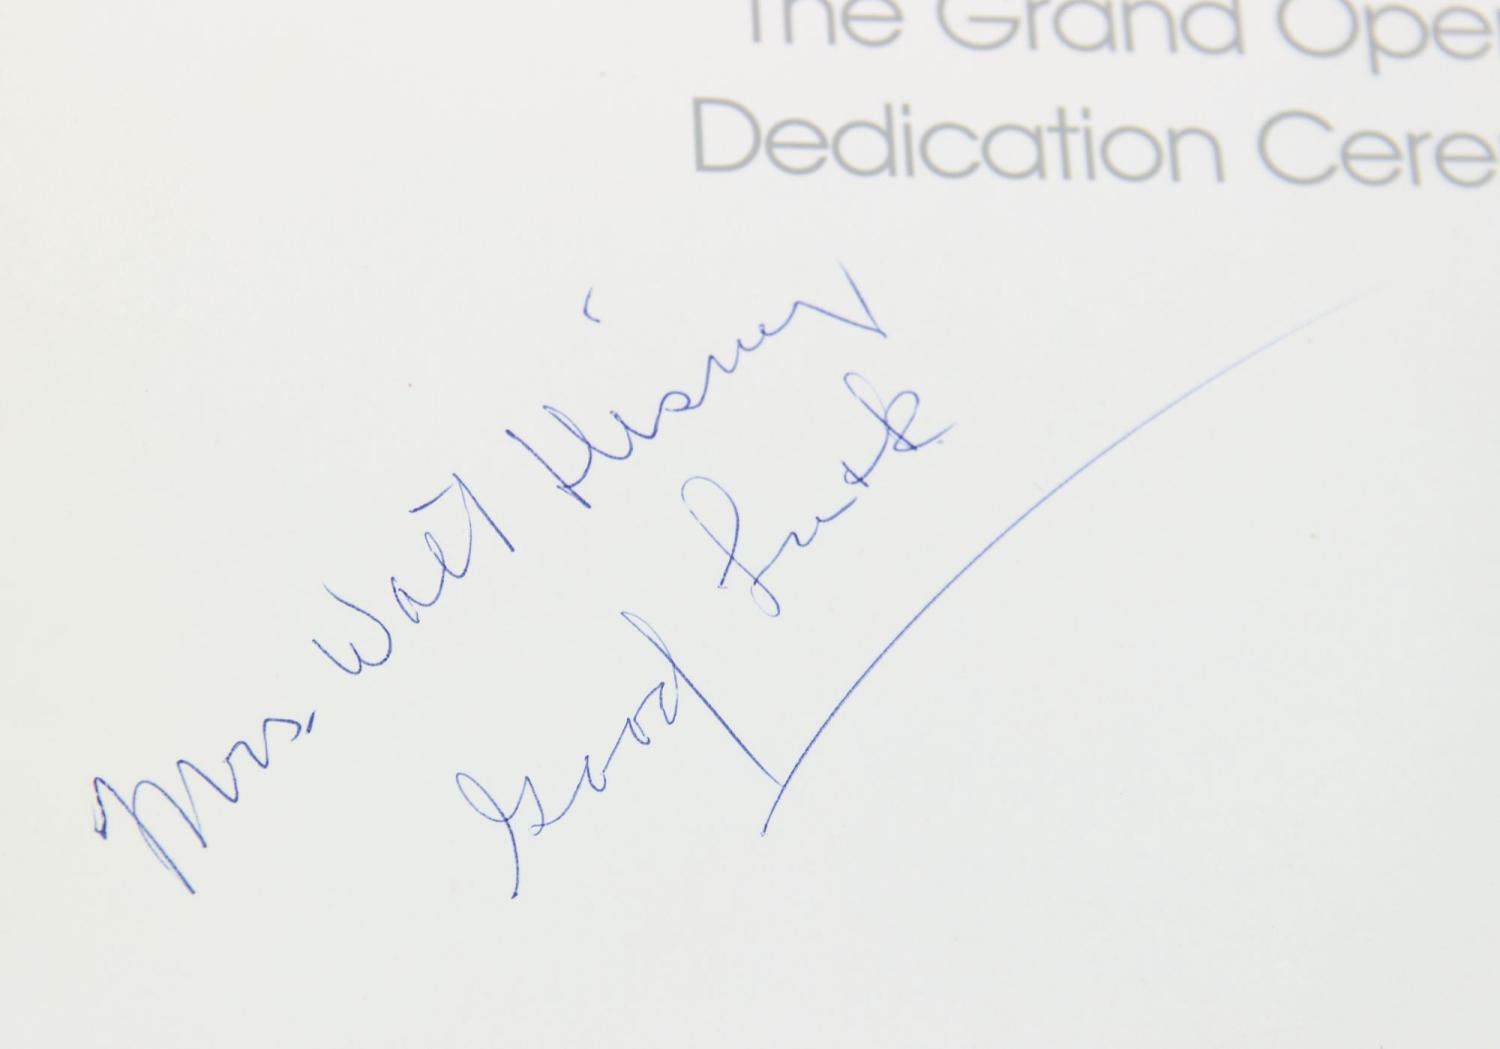 The Grand Ope
Dedication Cere
Mrs. Walt Disney
Good Luck